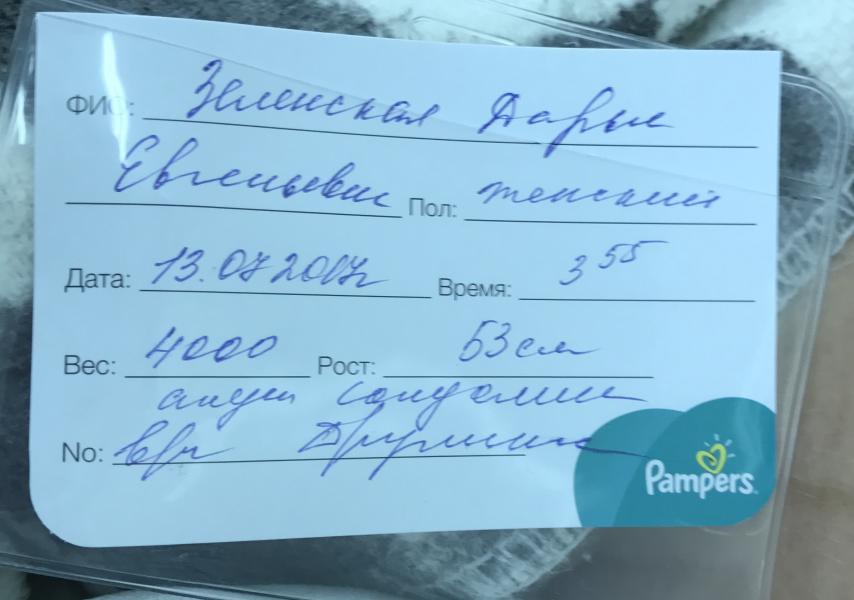 ФИО: Зеленская Дарья
Евгеньевна Пол: женский
Дата: 13.07 2017г Время: 3 55
Вес: 4000 Рост: 53 см
акуш
No: врч
Pampers